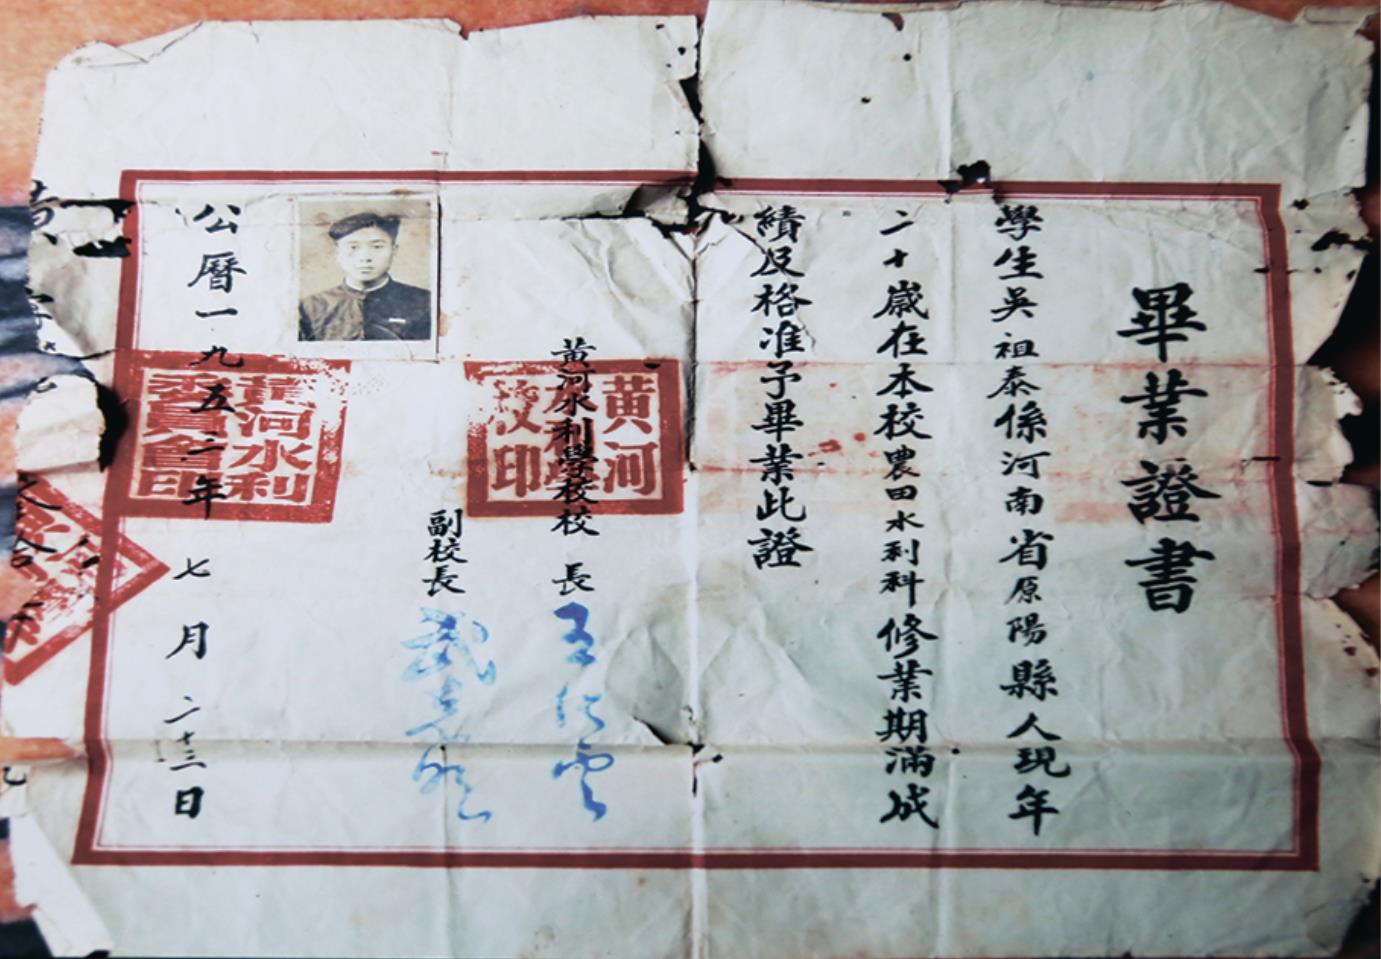 畢業證書
學生吳祖泰係河南省原陽縣人現年
二十歲在本校農田水利科修業期滿成
績及格准予畢業此證
黃河水利學校校長
王化雲
副校長
公曆一九五三年七月二十三日
黃河水利委員會印
黃河
校印